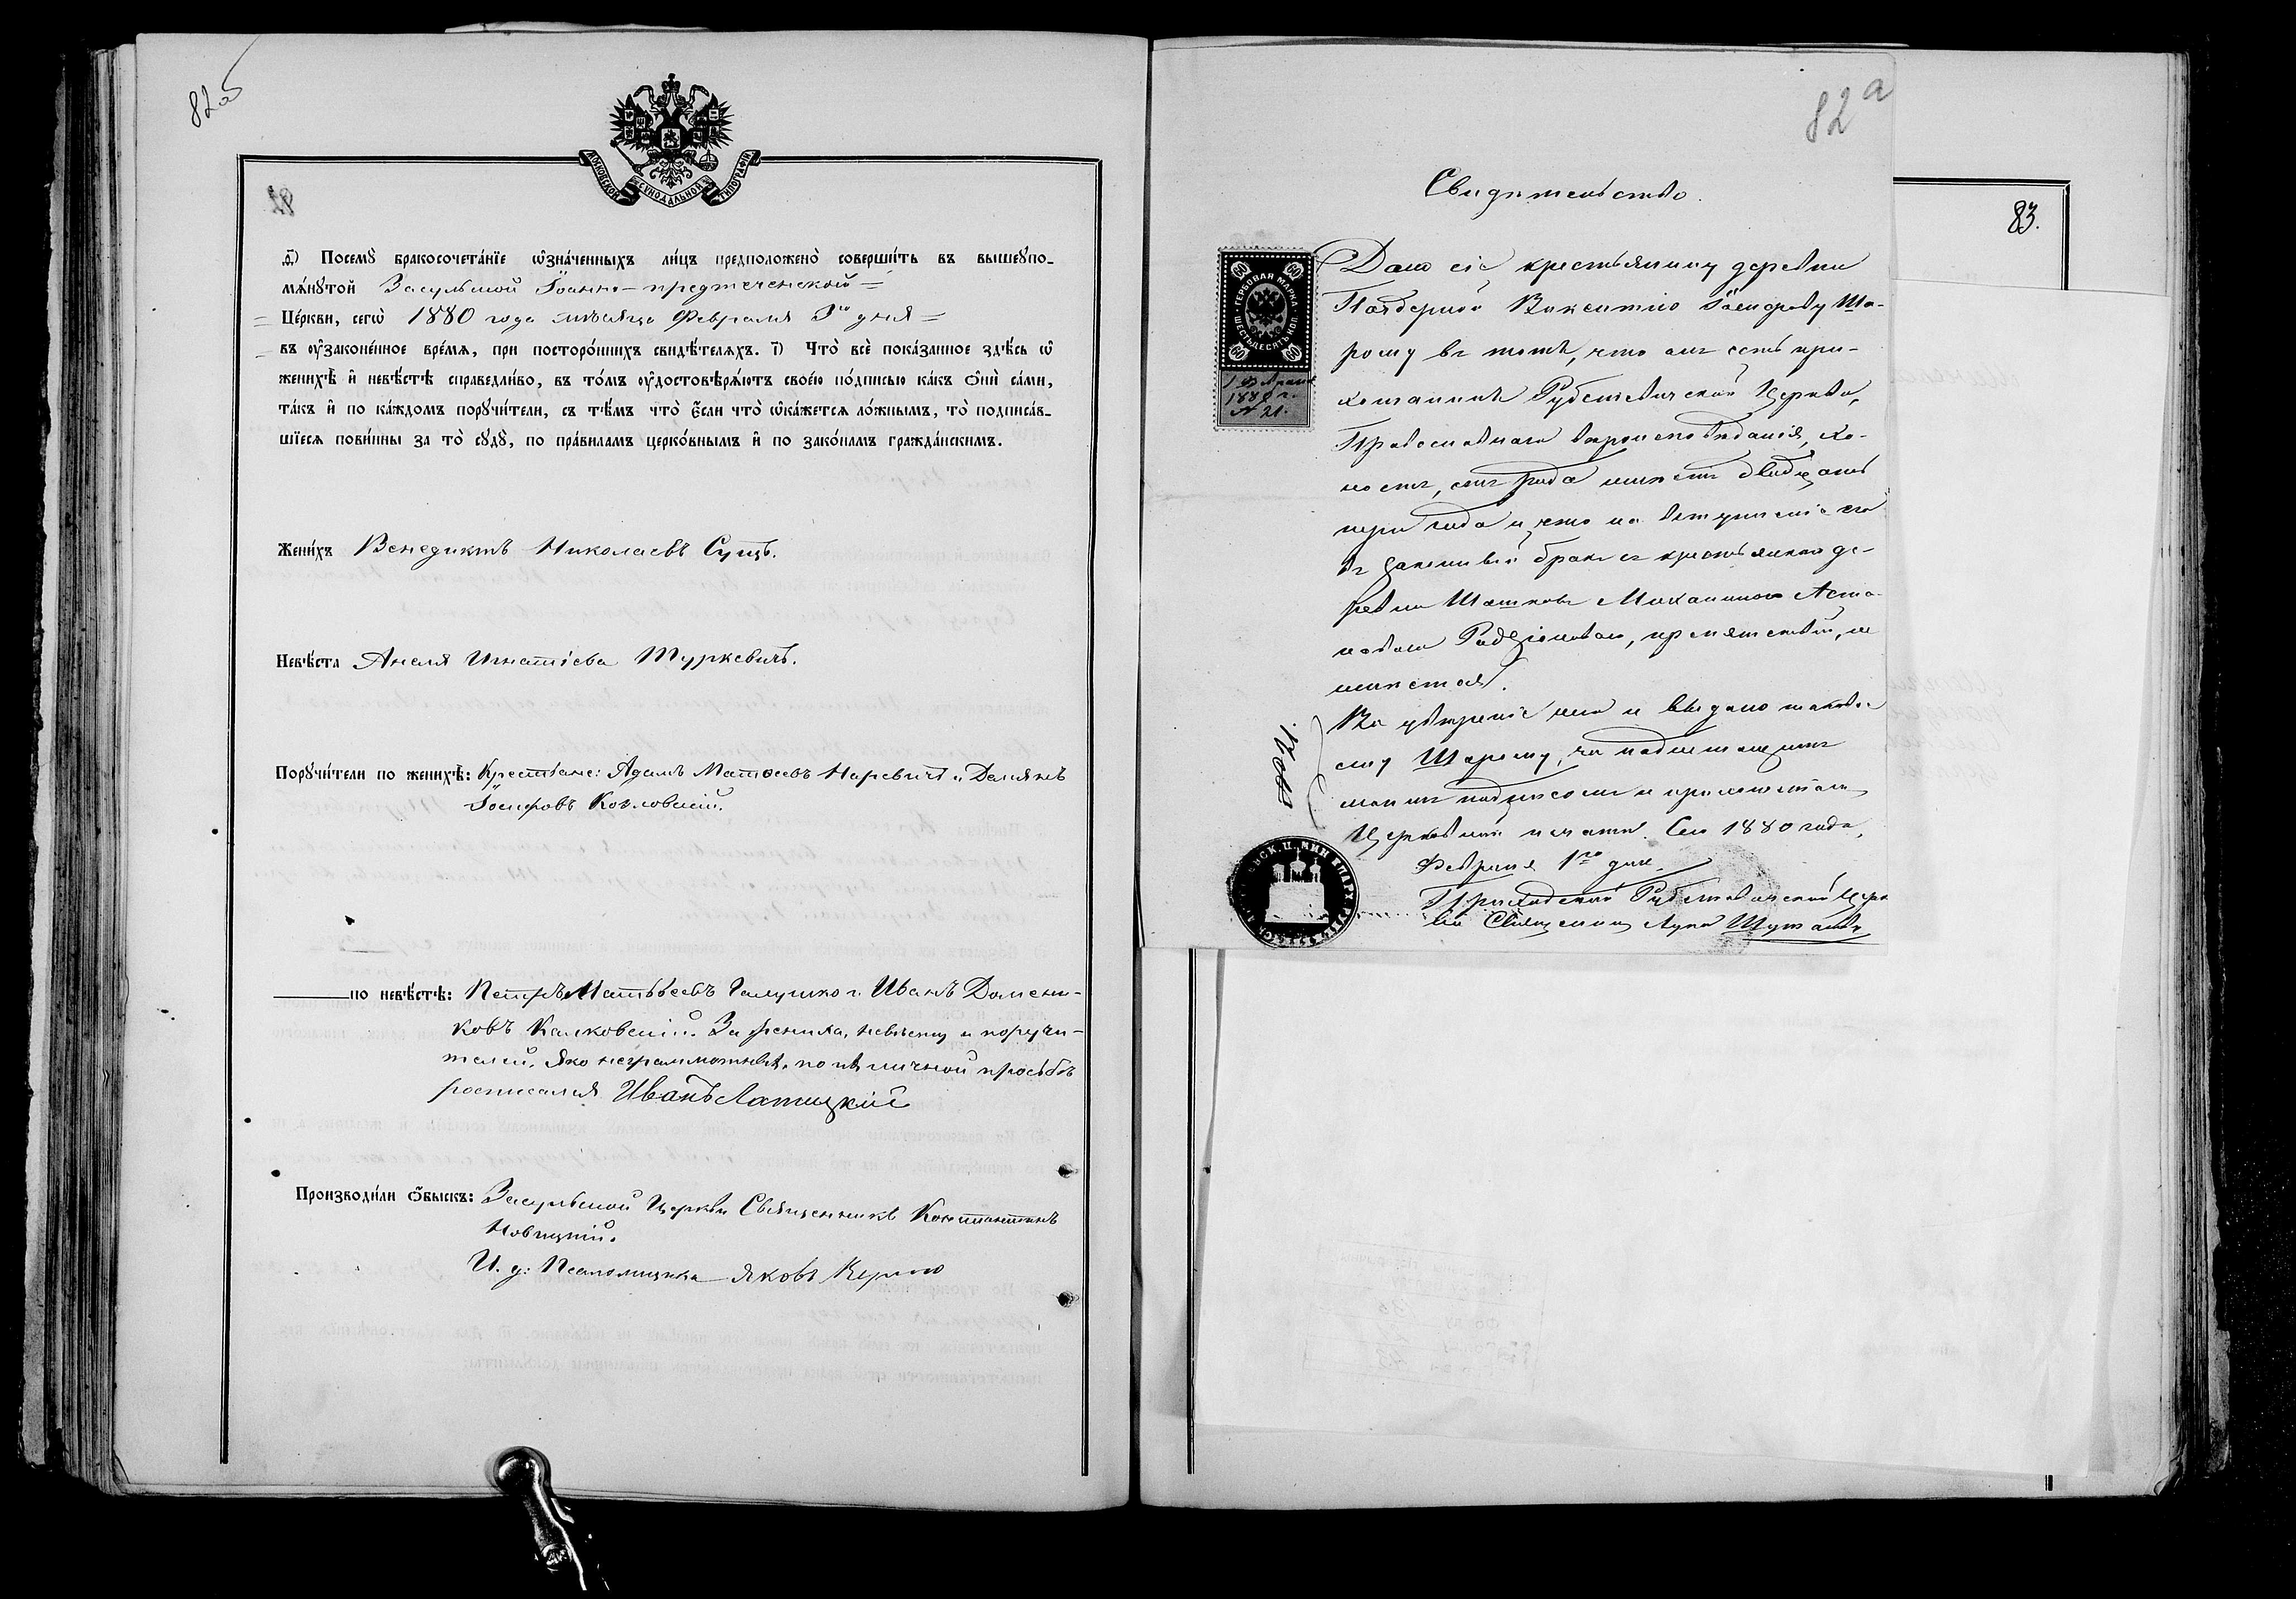 82об
МОСКОВСКОЙ СѴНОДАЛЬНОЙ ТИПОГРАФІИ
82
д҃) Посемꙋ̀ бракосочета́нїе ѡ҆зна́ченныхъ ли́цъ предположено̀ соверши́ть въ вышеꙋпо-
мѧ́нꙋтой Засульской Іоанно-предтеченской
Це́ркви, сегѡ̀ 1880 года мѣсяца Февраля 3го дня
въ ᲂу҆законе́нное вре́мѧ, при посторо́ннихъ свидѣ́телѧхъ. і҃) Что̀ всѐ пока́занное здѣ́сь ѡ҆
женихѣ̀ и҆ невѣ́стѣ справедли́во, въ то́мъ ᲂу҆достовѣрѧ́ютъ свое́ю по́дписью ка́къ ѻ҆нѝ са́ми,
та́къ и҆ по ка́ждомъ порꙋчи́тели, съ тѣ́мъ что̀ є҆́сли что̀ ѡ҆ка́жетсѧ ло́жнымъ, то̀ подписа́в-
шїесѧ пови́нны за то̀ сꙋдꙋ̀, по пра́виламъ церко́внымъ и҆ по зако́намъ гражда́нскимъ.
Жени́хъ Венедиктъ Николаевъ Супъ.
Невѣ́ста Анеля Игнатіева Туркевичъ.
Порꙋчи́тели по женихѣ̀: Крестьяне: Адамъ Матѳеевъ Наревичъ и Демянъ
Іосифовъ Козловскій.
по невѣ́стѣ: Петръ Матвѣевъ Галушко и Иванъ Домени-
ковъ Калковскій. За жениха, невѣсту и поручи-
телей, яко неграмотныхъ, по ихъ личной просьбѣ
росписался Иванъ Лапицкій
Производи́ли ѻ҆́быскъ: Засульской Церкви Священникъ Константинъ
Новицкій.
И. д. Псаломщика Яковъ
82а
83.
Свидѣтельство.
ГЕРБОВАЯ МАРКА
ШЕСТЬДЕСЯТЪ КОП.
60 60 60 60
1 Февраля
1880 г.
№ 21.
Дано сіе крестьянину деревни
Викентію Іосифову Ша-
рому въ томъ, что онъ есть при-
хожанинъ Рубежевичской Церкви,
Православнаго вѣроисповѣданія, хо-
лостъ, отъ рода имѣетъ двадцать
три года и что на вступленіе его
въ законный бракъ съ крестьянкою де-
ревни Михалиною
Радзіоновою, препятствій не
имѣется.
Въ увѣреніе чего и выдано таково
ему Шарому, за надлежащимъ
моимъ подписомъ и приложеніемъ
Церковной печати. Сего 1880 года,
Февраля 1го дня.
Приходской Рубежевичской Церк
ви Священникъ Лука